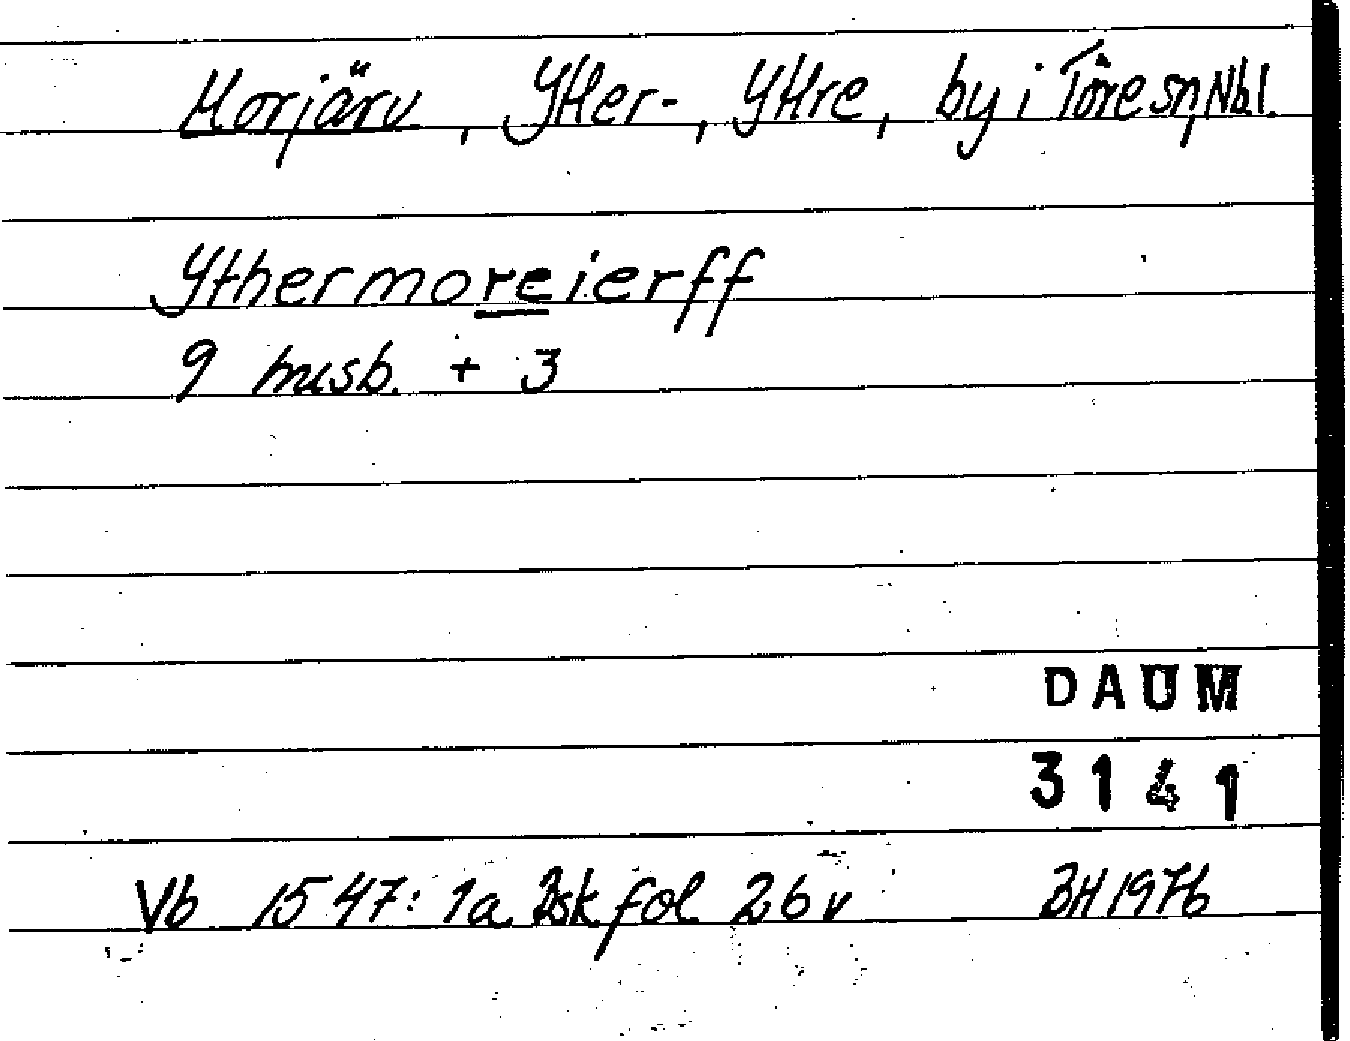 Morjärv, Ytter-, Yttre, by i Töre sn, Nbl.
Ythermoreierff
9 husb. + 3
DAUM
3141
Vb 1547: 1a Bsk fol 26 v BH 1976